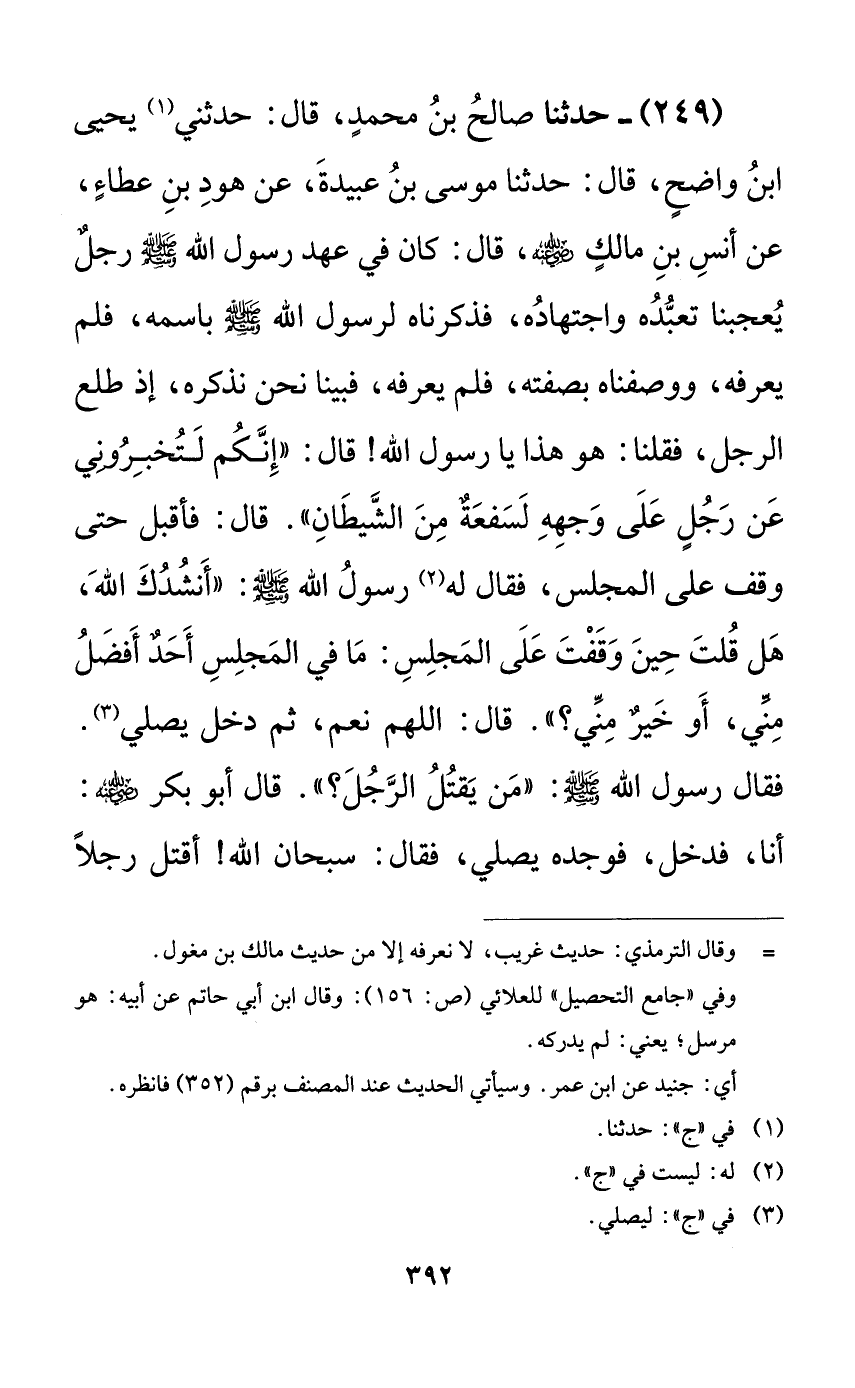 (٢٤٩) ـ حدثنا صالحُ بنُ محمدٍ، قال: حدثني(١) يحيى
ابنُ واضحٍ، قال: حدثنا موسى بنُ عبيدةَ، عن هودِ بنِ عطاءٍ،
عن أنسِ بنِ مالكٍ رضي الله عنه، قال: كان في عهد رسول الله ﷺ رجلٌ
يُعجبنا تعبُّدُه واجتهادُه، فذكرناه لرسول الله ﷺ باسمه، فلم
يعرفه، ووصفناه بصفته، فلم يعرفه، فبينا نحن نذكره، إذ طلع
الرجل، فقلنا: هو هذا يا رسول الله! قال: «إِنَّكُم لَتُخبِرُونِي
عَن رَجُلٍ عَلَى وَجهِهِ لَسَفعَةٌ مِنَ الشَّيطَانِ». قال: فأقبل حتى
وقف على المجلس، فقال له(٢) رسولُ الله ﷺ: «أَنشُدُكَ اللهَ،
هَل قُلتَ حِينَ وَقَفْتَ عَلَى المَجلِسِ: مَا في المَجلِسِ أَحَدٌ أَفضَلُ
مِنِّي، أَو خَيرٌ مِنِّي؟». قال: اللهم نعم، ثم دخل يصلي(٣).
فقال رسول الله ﷺ: «مَن يَقتُلُ الرَّجُلَ؟». قال أبو بكر رضي الله عنه:
أنا، فدخل، فوجده يصلي، فقال: سبحان الله! أقتل رجلاً
= وقال الترمذي: حديث غريب، لا نعرفه إلا من حديث مالك بن مغول.
وفي «جامع التحصيل» للعلائي (ص: ١٥٦): وقال ابن أبي حاتم عن أبيه: هو
مرسل؛ يعني: لم يدركه.
أي: جنيد عن ابن عمر. وسيأتي الحديث عند المصنف برقم (٣٥٢) فانظره.
(١) في «ج»: حدثنا.
(٢) له: ليست في «ج».
(٣) في «ج»: ليصلي.
٣٩٢